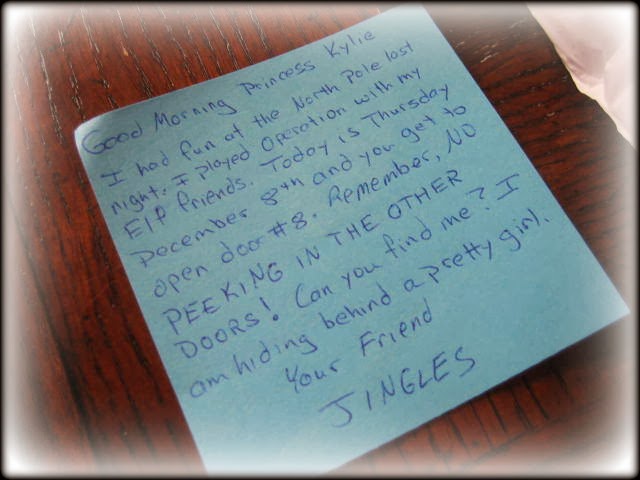 Good Morning Princess Kylie
I had fun at the North Pole last
night. I played Operation with my
Elf friends. Today is Thursday
December 8th and you get to
open door #8. Remember, NO
PEEKING IN THE OTHER
DOORS! Can you find me? I
am hiding behind a pretty girl.
Your Friend
JINGLES